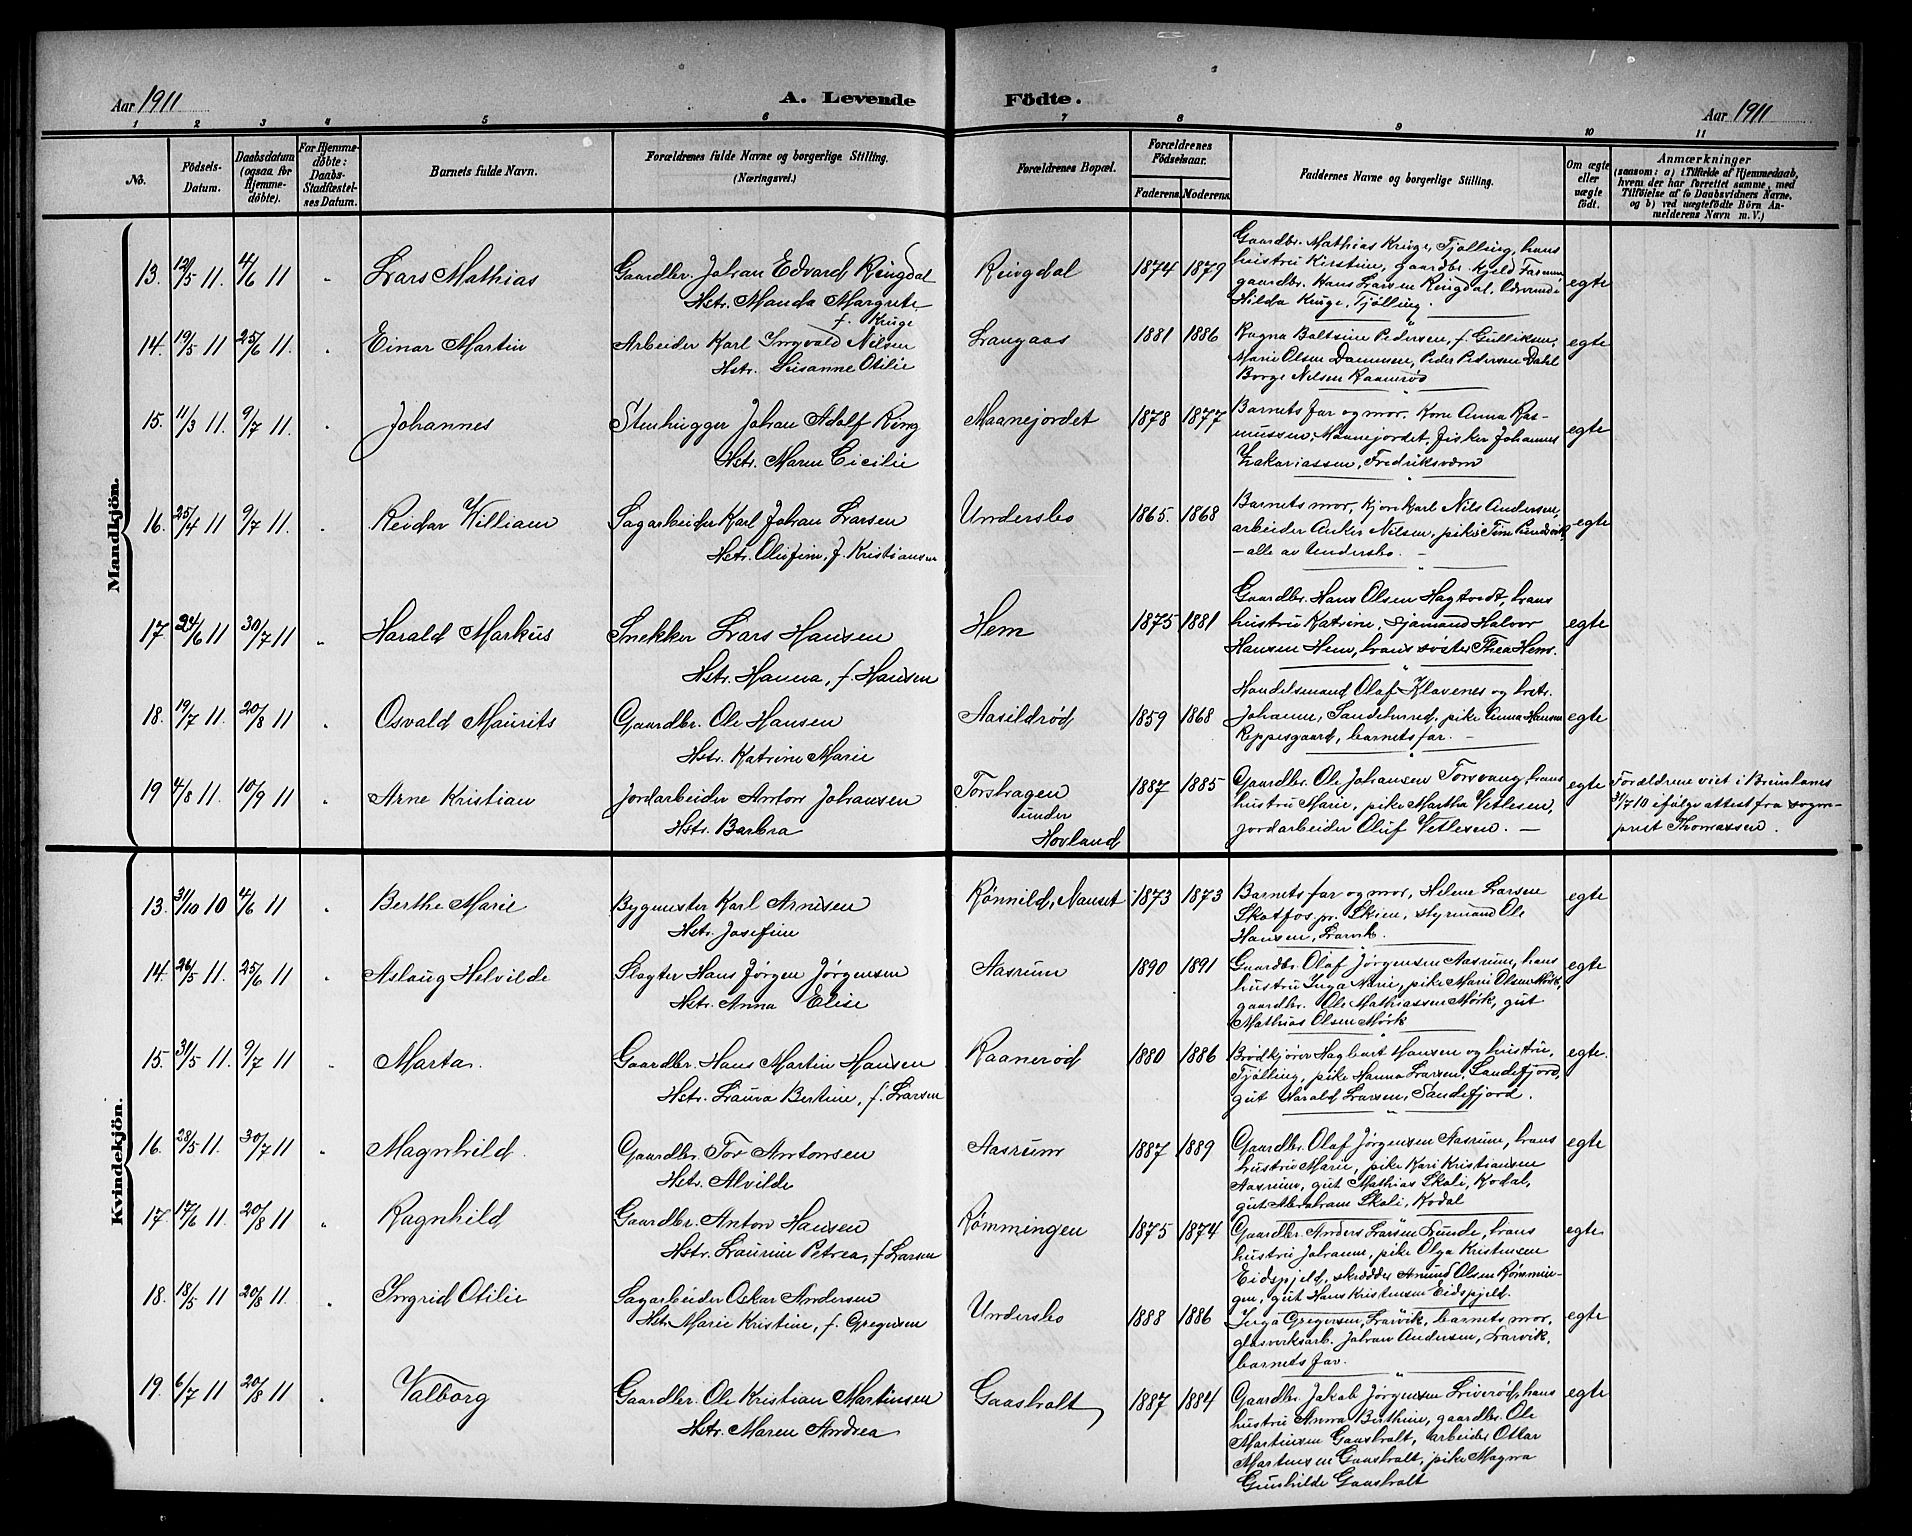 Aar 1911 A. Levende Födte. Aar 1911
1 2 3 4 5 6 7 8 9 10 11
No. Födsels-Datum. Daabsdatum (ogsaa for Hjemmedøbte). For Hjemmedøbte: Daabs-Stadfæstelses Datum. Barnets fulde Navn. Forældrenes fulde Navne og borgerlige Stilling. (Næringsvei.) Forældrenes Bopæl. Forældrenes Födselsaar. Faderens. Moderens. Faddernes Navne og borgerlige Stilling. Om ægte eller uægte født. Anmærkninger (saasom: a) i Tilfælde af Hjemmedaab, hvem der har forrettet samme, med Tilföielse af to Daabsvidners Navne, og b) ved uægtefödte Börn Anmelderens Navn m. V.)
Mandkjön.
13. 12/5 11. 4/6 11 " Lars Mathias
Gaardbr. Johan Edvard Ringdal
Hstr. Manda Margrete
f. Kruge
Ringdal 1874 1879
Gaardbr. Mathias Kruge, Tjølling, hans
hustru Kirstine, gaardbr. Kjeld
gaardbr. Hans Larsen Ringdal,
Hilda Kruge, Tjølling.
egte
14. 19/5 11 25/6 11. " Einar Martin
Arbeider Karl Ingvald Nilsen
Hstr. Susanne Otilie
Langaas 1881 1886
Ragna Baltsine Pedersen, f. Gulliksen,
Marie Olsen Dammen, Peder Pedersen Dahl
Borge Nilsen Raanerød
egte
15. 11/3 11 9/7 11. " Johannes
Stenhugger Johan Adolf Ring
Hstr. Maren Cicilie
Maanejordet 1878 1877
Barnets far og mor, Kone Anna Ras-
mussen, Maanejordet, fisker Johannes
Zakariassen, Fredriksværn
egte
16. 25/4 11 9/7 11. " Reidar William
Sagarbeider Karl Johan Larsen
Hstr. Olufine, f. Kristiansen
Undersbo 1865. 1868
Barnets mor, kjørekarl Nils Andersen,
arbeider Anker Nilsen, pike
- alle av Undersbo. -
egte
17 24/6 11 30/7 11 " Harald Markus
Snekker Lars Hansen
Hstr. Hanna, f. Hansen
Hem 1875 1881
Gaardbr. Hans Olsen Hagtvedt, hans
hustru Katrine, sjømand Halvor
Hansen Hem, hans søster Thea Hem.
egte
18. 19/7 11. 20/8 11 " Osvald Maurits
Gaardbr. Ole Hansen
Hstr. Katrine Marie
Aasildrød 1859 1868
Handelsmand Olaf Klavenes og hstr.
Johanne, Sandehered, pike Anna Hansen
Reppesgaard, barnets far. -
egte
19 4/8 11. 10/9 11 " Arne Kristian
Jordarbeider Anton Johansen
Hstr. Barbra
Torshagen
under
Hovland
1887 1885
Gaardbr. Ole Johansen Torsvang, hans
hustru Marie, pike Martha Vetlesen,
jordarbeider Oluf Vetlesen. -
egte
Forældrene viet i Brunlanes
31/7 10 ifølge attest fra sogne-
prest Thomassen.
Kvindekjön.
13. 31/10 10 4/6 11 " Berthe Marie
Bygmester Karl Arnesen
Hstr. Josefine
Rønnild, Nanset 1873 1873
Barnets far og mor, Helene Larsen
Skotfos pr. Skien, styrmand Ole
Hansen, Larvik.
egte
14. 26/5 11 25/6 11 " Aslaug Helvilde
Slagter Hans Jørgen Jørgensen
Hstr. Anna Elise
Aasrum 1890 1891
Gaardbr. Olaf Jørgensen Aasrum, hans
hustru Inga Marie, pike Marie Olsen Mørk,
gaardbr. Ole Mathiassen Mørk, gut
Mathias Olsen Mørk
egte
15. 31/5 11 9/7 11 " Marta.
Gaardbr. Hans Martin Hansen
Hstr. Laura Bertine, f. Larsen
Raanerød 1880 1886
Brødkjører Hagbart Hansen og hustru,
Tjølling, pike Hanna Larsen, Sandefjord,
gut Harald Larsen, Sandefjord.
egte.
16. 28/5 11. 30/7 11 " Magnhild.
Gaardbr. Tor Antonsen
Hstr. Alvilde
Aasrum 1887 1889
Gaardbr. Olaf Jørgensen Aasrum, hans
hustru Marie, pike Kari Kristiansen
Aasrum, gut Mathias Skoli, Kodal,
gut Abraham Skoli, Kodal
egte
17. 17/6 11. 20/8 11 " Ragnhild
Gaardbr. Anton Hansen
Hstr. Laurine Petrea, f. Larsen
Rømmingen 1875 1874
Gaardbr. Anders Larsen Lunde, hans
hustru Johanne, pike Olga Kristensen
Eidspjeld, skrædder Amund Olsen Rømmin-
gen, gut Hans Kristensen Eidspjeld.
egte
18. 18/5 11 20/8 11. " Ingrid Otilie
Sagarbeider Oskar Andersen
Hstr. Marie Kristine, f. Gregersen
Undersbo 1888 1886
Inga Gregersen, Larvik, barnets mor,
glasverksarb. Johan Andersen, Larvik,
barnets far.
egte
19. 6/7 11 20/8 11 " Valborg
Gaardbr. Ole Kristian Martinsen
Hstr. Maren Andrea
Gaasholt 1887 1884
Gaardbr. Jakob Jørgensen Liverød, hans
hustru Anna Berthine, gaardbr. Ole
Martinsen Gaasholt, arbeider Ottar
Martinsen Gaasholt, pike Magna
Gunhilde Gaasholt
egte